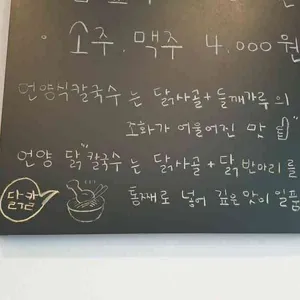 · 소주. 맥주 4,000원
언양식칼국수 는 닭사골+들깨가루의
조화가 어울어진 맛
언양 닭"칼국수는 닭사골+닭반마리를
통째로 넣어 깊은맛이 일품
닭칼